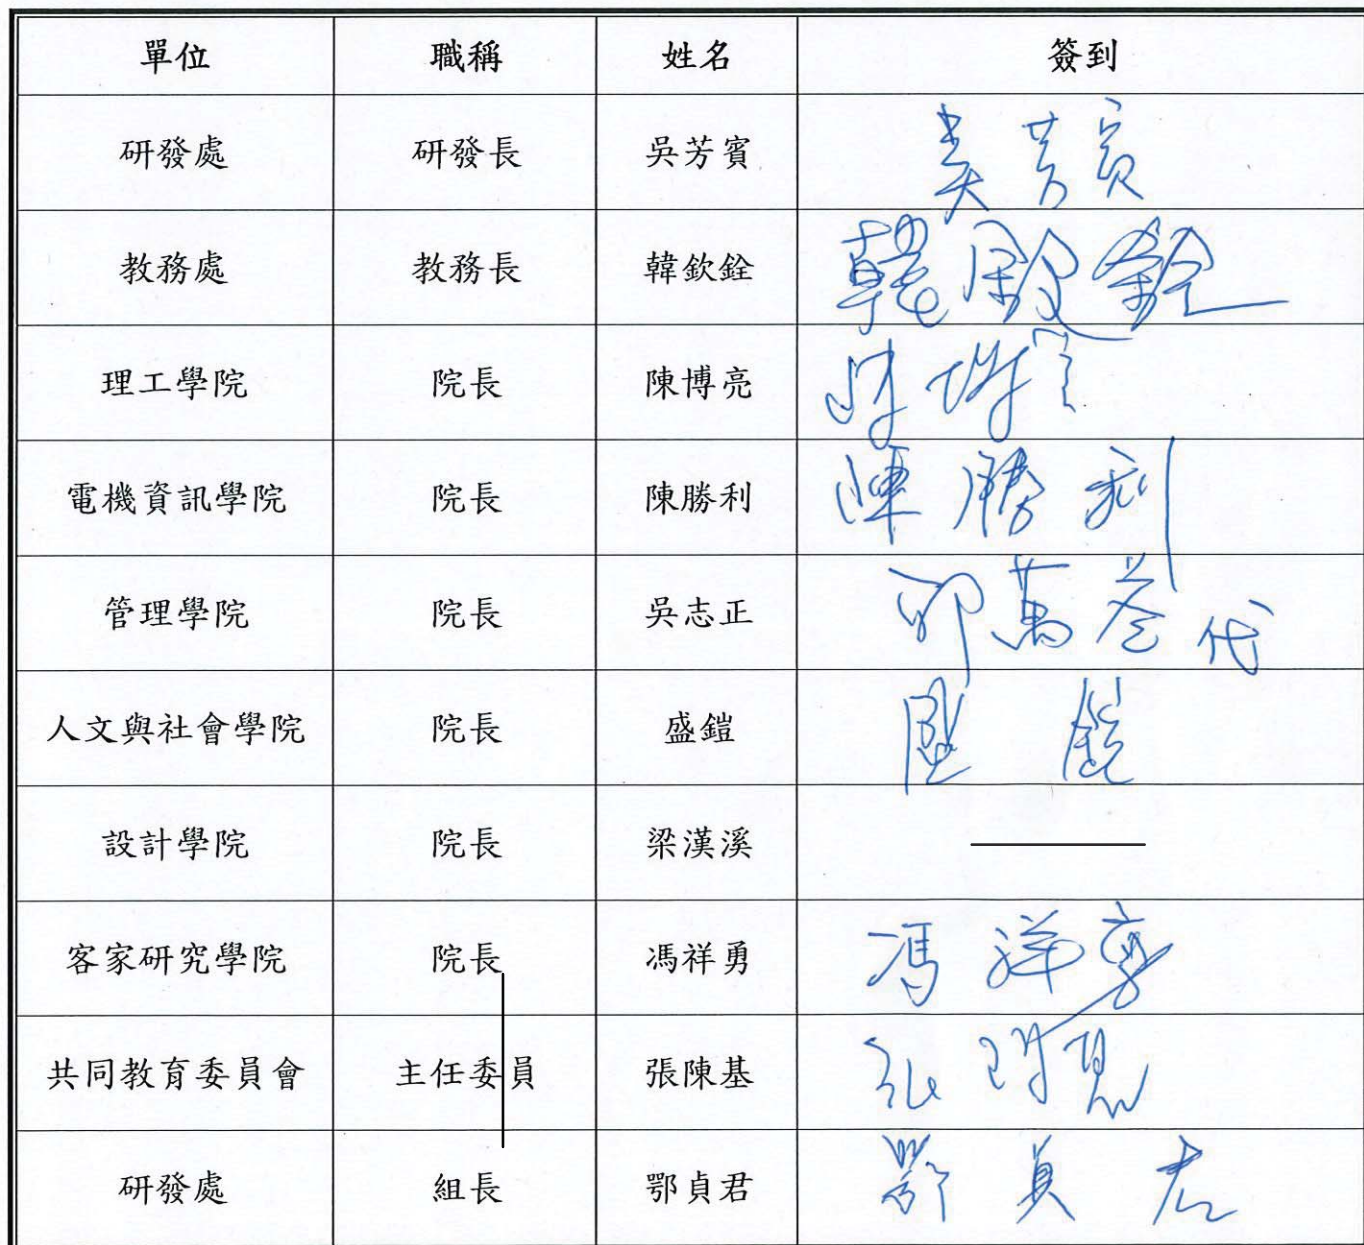 單位 職稱 姓名 簽到
研發處 研發長 吳芳賓 吳芳賓
教務處 教務長 韓欽銓 韓欽銓
理工學院 院長 陳博亮 陳博亮
電機資訊學院 院長 陳勝利 陳勝利
管理學院 院長 吳志正 代
人文與社會學院 院長 盛鎧 盛鎧
設計學院 院長 梁漢溪
客家研究學院 院長 馮祥勇 馮祥勇
共同教育委員會 主任委員 張陳基 張陳基
研發處 組長 鄂貞君 鄂貞君